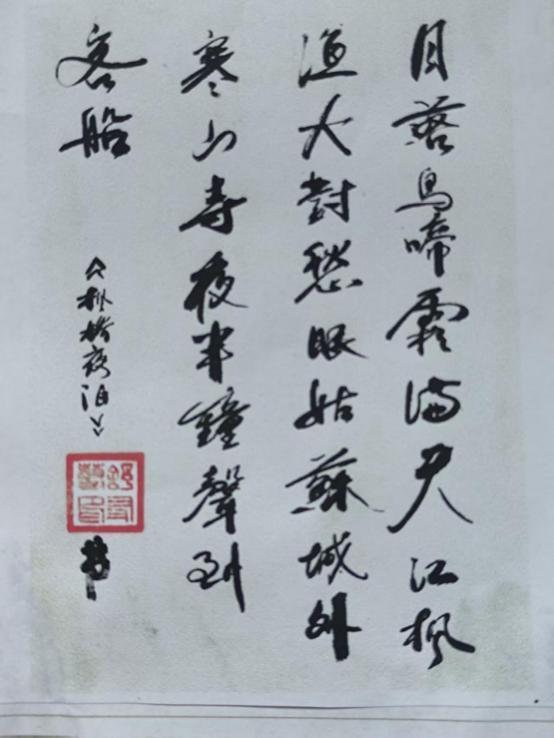 月落烏啼霜满天江枫
渔火對愁眠姑蘇城外
寒山寺夜半鐘聲到
客船
《枫橋夜泊》
书